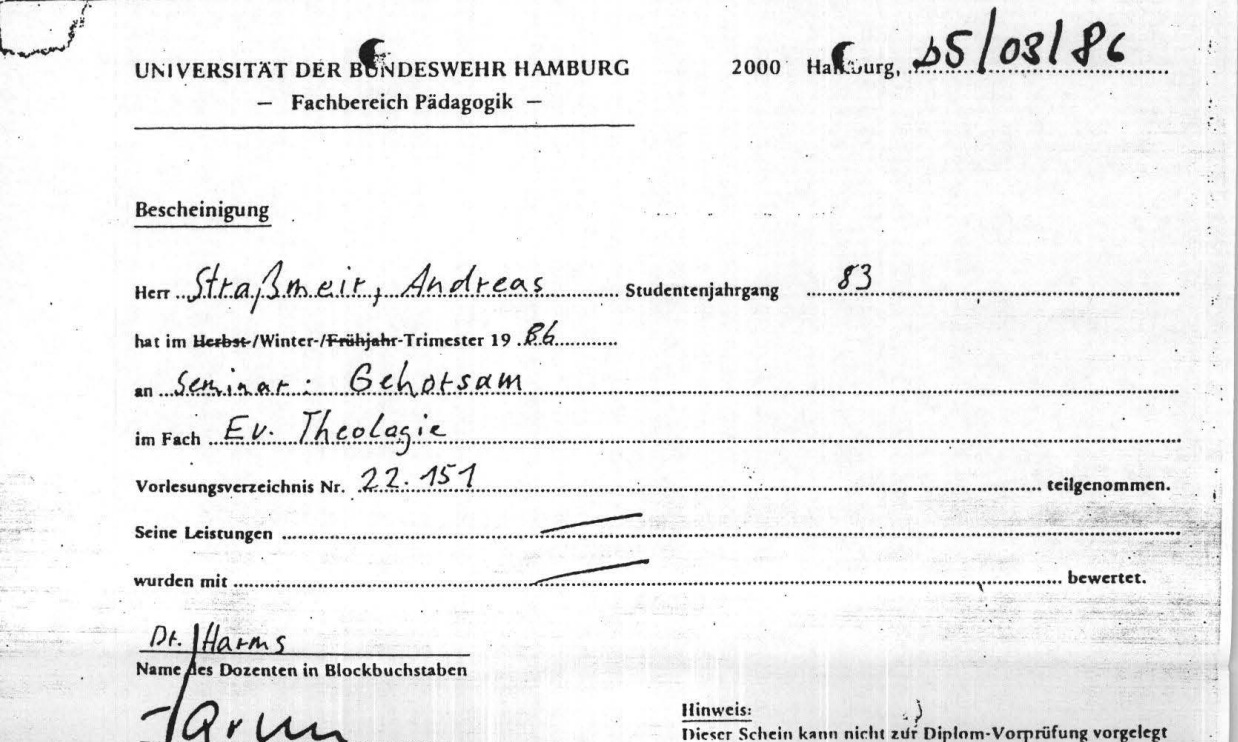 UNIVERSITÄT DER BUNDESWEHR HAMBURG 2000 Hamburg, 25/03/86
– Fachbereich Pädagogik –
Bescheinigung
Herr Straßmeir, Andreas Studentenjahrgang 83
hat im Herbst-/Winter-/Frühjahr-Trimester 19 86
an Seminar: Gehorsam
im Fach Ev. Theologie
Vorlesungsverzeichnis Nr. 22.151 teilgenommen.
Seine Leistungen
wurden mit bewertet.
Dr. Harms
Name des Dozenten in Blockbuchstaben
Harms
Hinweis:
Dieser Schein kann nicht zur Diplom-Vorprüfung vorgelegt